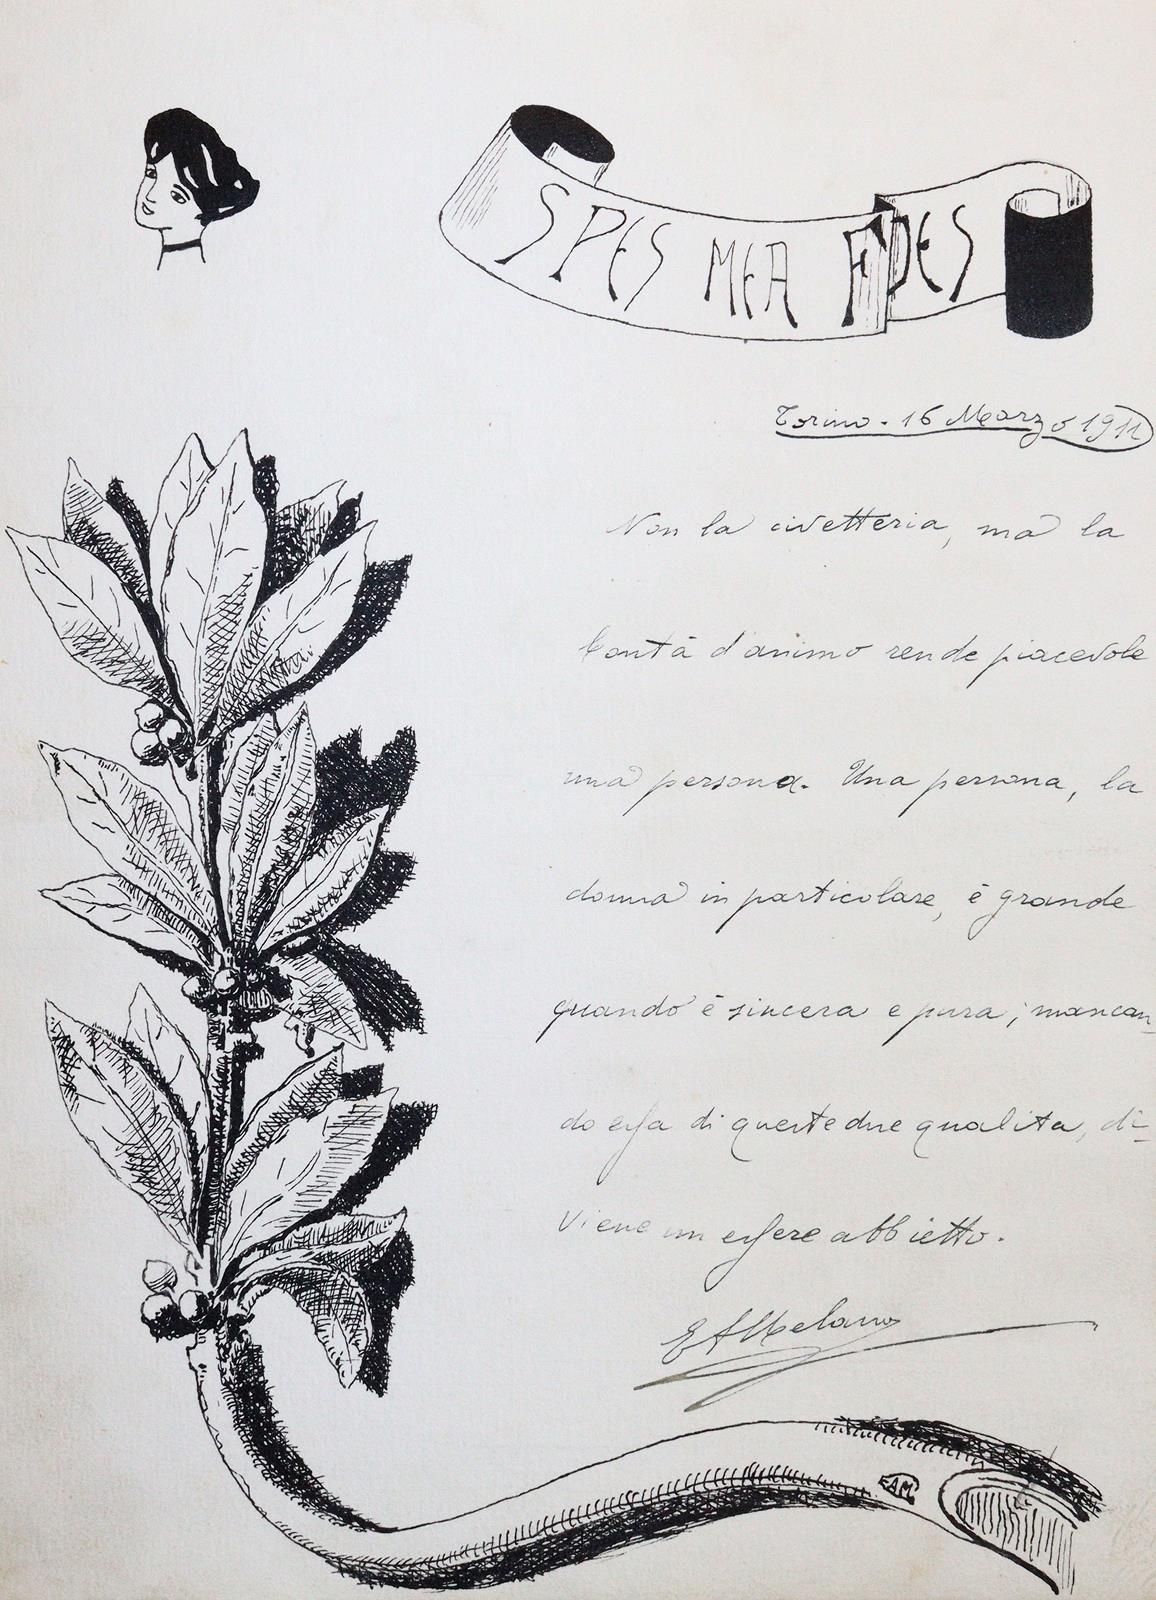 SPES MEA FIDES
Torino - 16 Marzo 1911
Non la civetteria, ma la
bontà d'animo rende piacevole
una persona. Una persona, la
donna in particolare, è grande
quando è sincera e pura; mancan-
do essa di queste due qualita, di-
viene un essere abbietto.
E A Melano
EAM